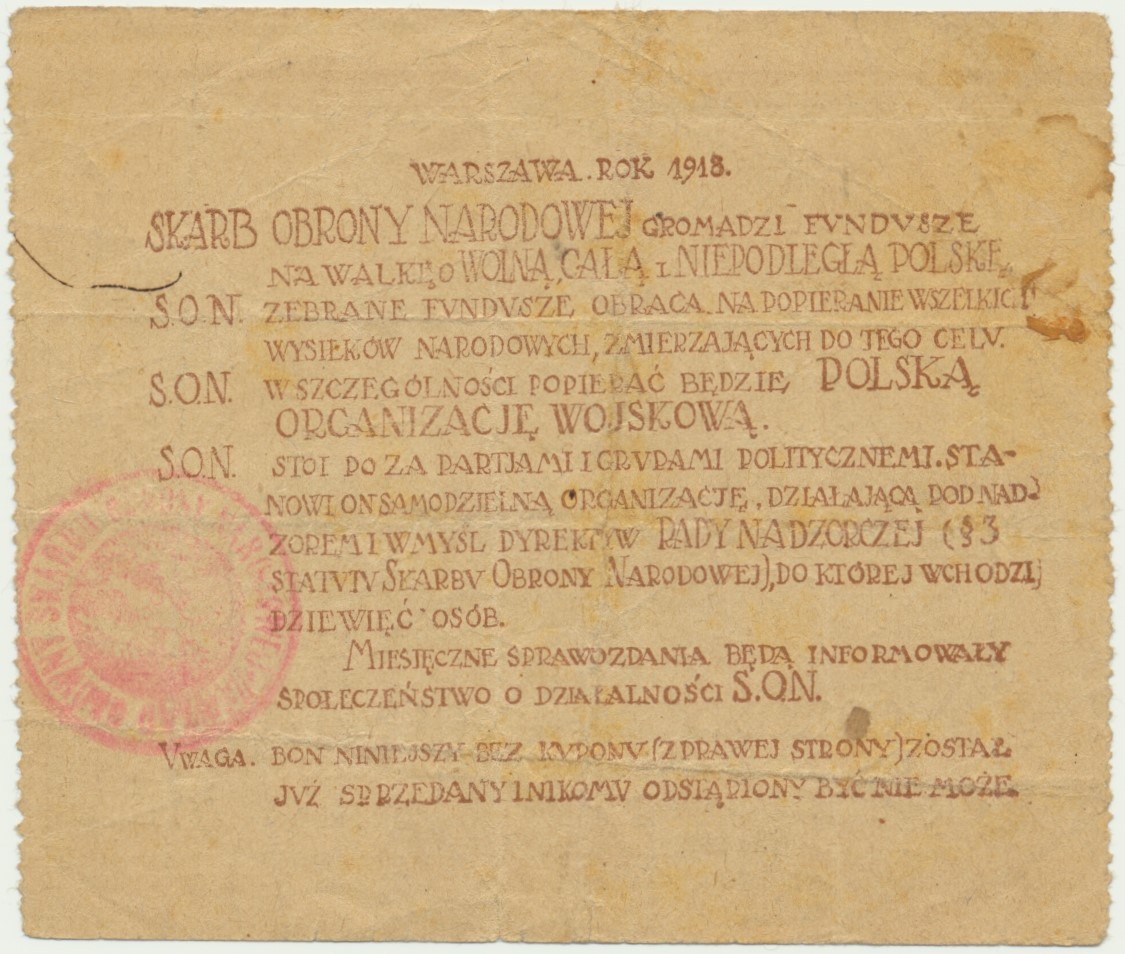 WARSZAWA. ROK 1918.
SKARB OBRONY NARODOWEJ GROMADZI FVNDVSZE
NA WALKĘ O WOLNĄ, CAŁĄ I NIEPODLEGŁĄ POLSKĘ.
S.O.N. ZEBRANE FVNDVSZE OBRACA NA POPIERANIE WSZELKICH
WYSIŁKÓW NARODOWYCH, ZMIERZAJĄCYCH DO TEGO CELV.
S.O.N. W SZCZEGÓLNOŚCI POPIERAĆ BĘDZIE POLSKĄ
ORGANIZACJĘ WOJSKOWĄ.
S.O.N. STOI POZA PARTJAMI I GRVPAMI POLITYCZNEMI. STA-
NOWI ON SAMODZIELNĄ ORGANIZACJĘ, DZIAŁAJĄCĄ POD NAD-
ZOREM I W MYŚL DYREKTYW RADY NADZORCZEJ (§3
STATVTV SKARBV OBRONY NARODOWEJ), DO KTÓREJ WCHODZI
DZIEWIĘĆ OSÓB.
MIESIĘCZNE SPRAWOZDANIA BĘDĄ INFORMOWAŁY
SPOŁECZEŃSTWO O DZIAŁALNOŚCI S.O.N.
VWAGA. BON NINIEJSZY BEZ KVPONV (Z PRAWEJ STRONY) ZOSTAŁ
JVŻ SPRZEDANY I NIKOMV ODSTĄPIONY BYĆ NIE MOŻE.
SKARBU OBRONY